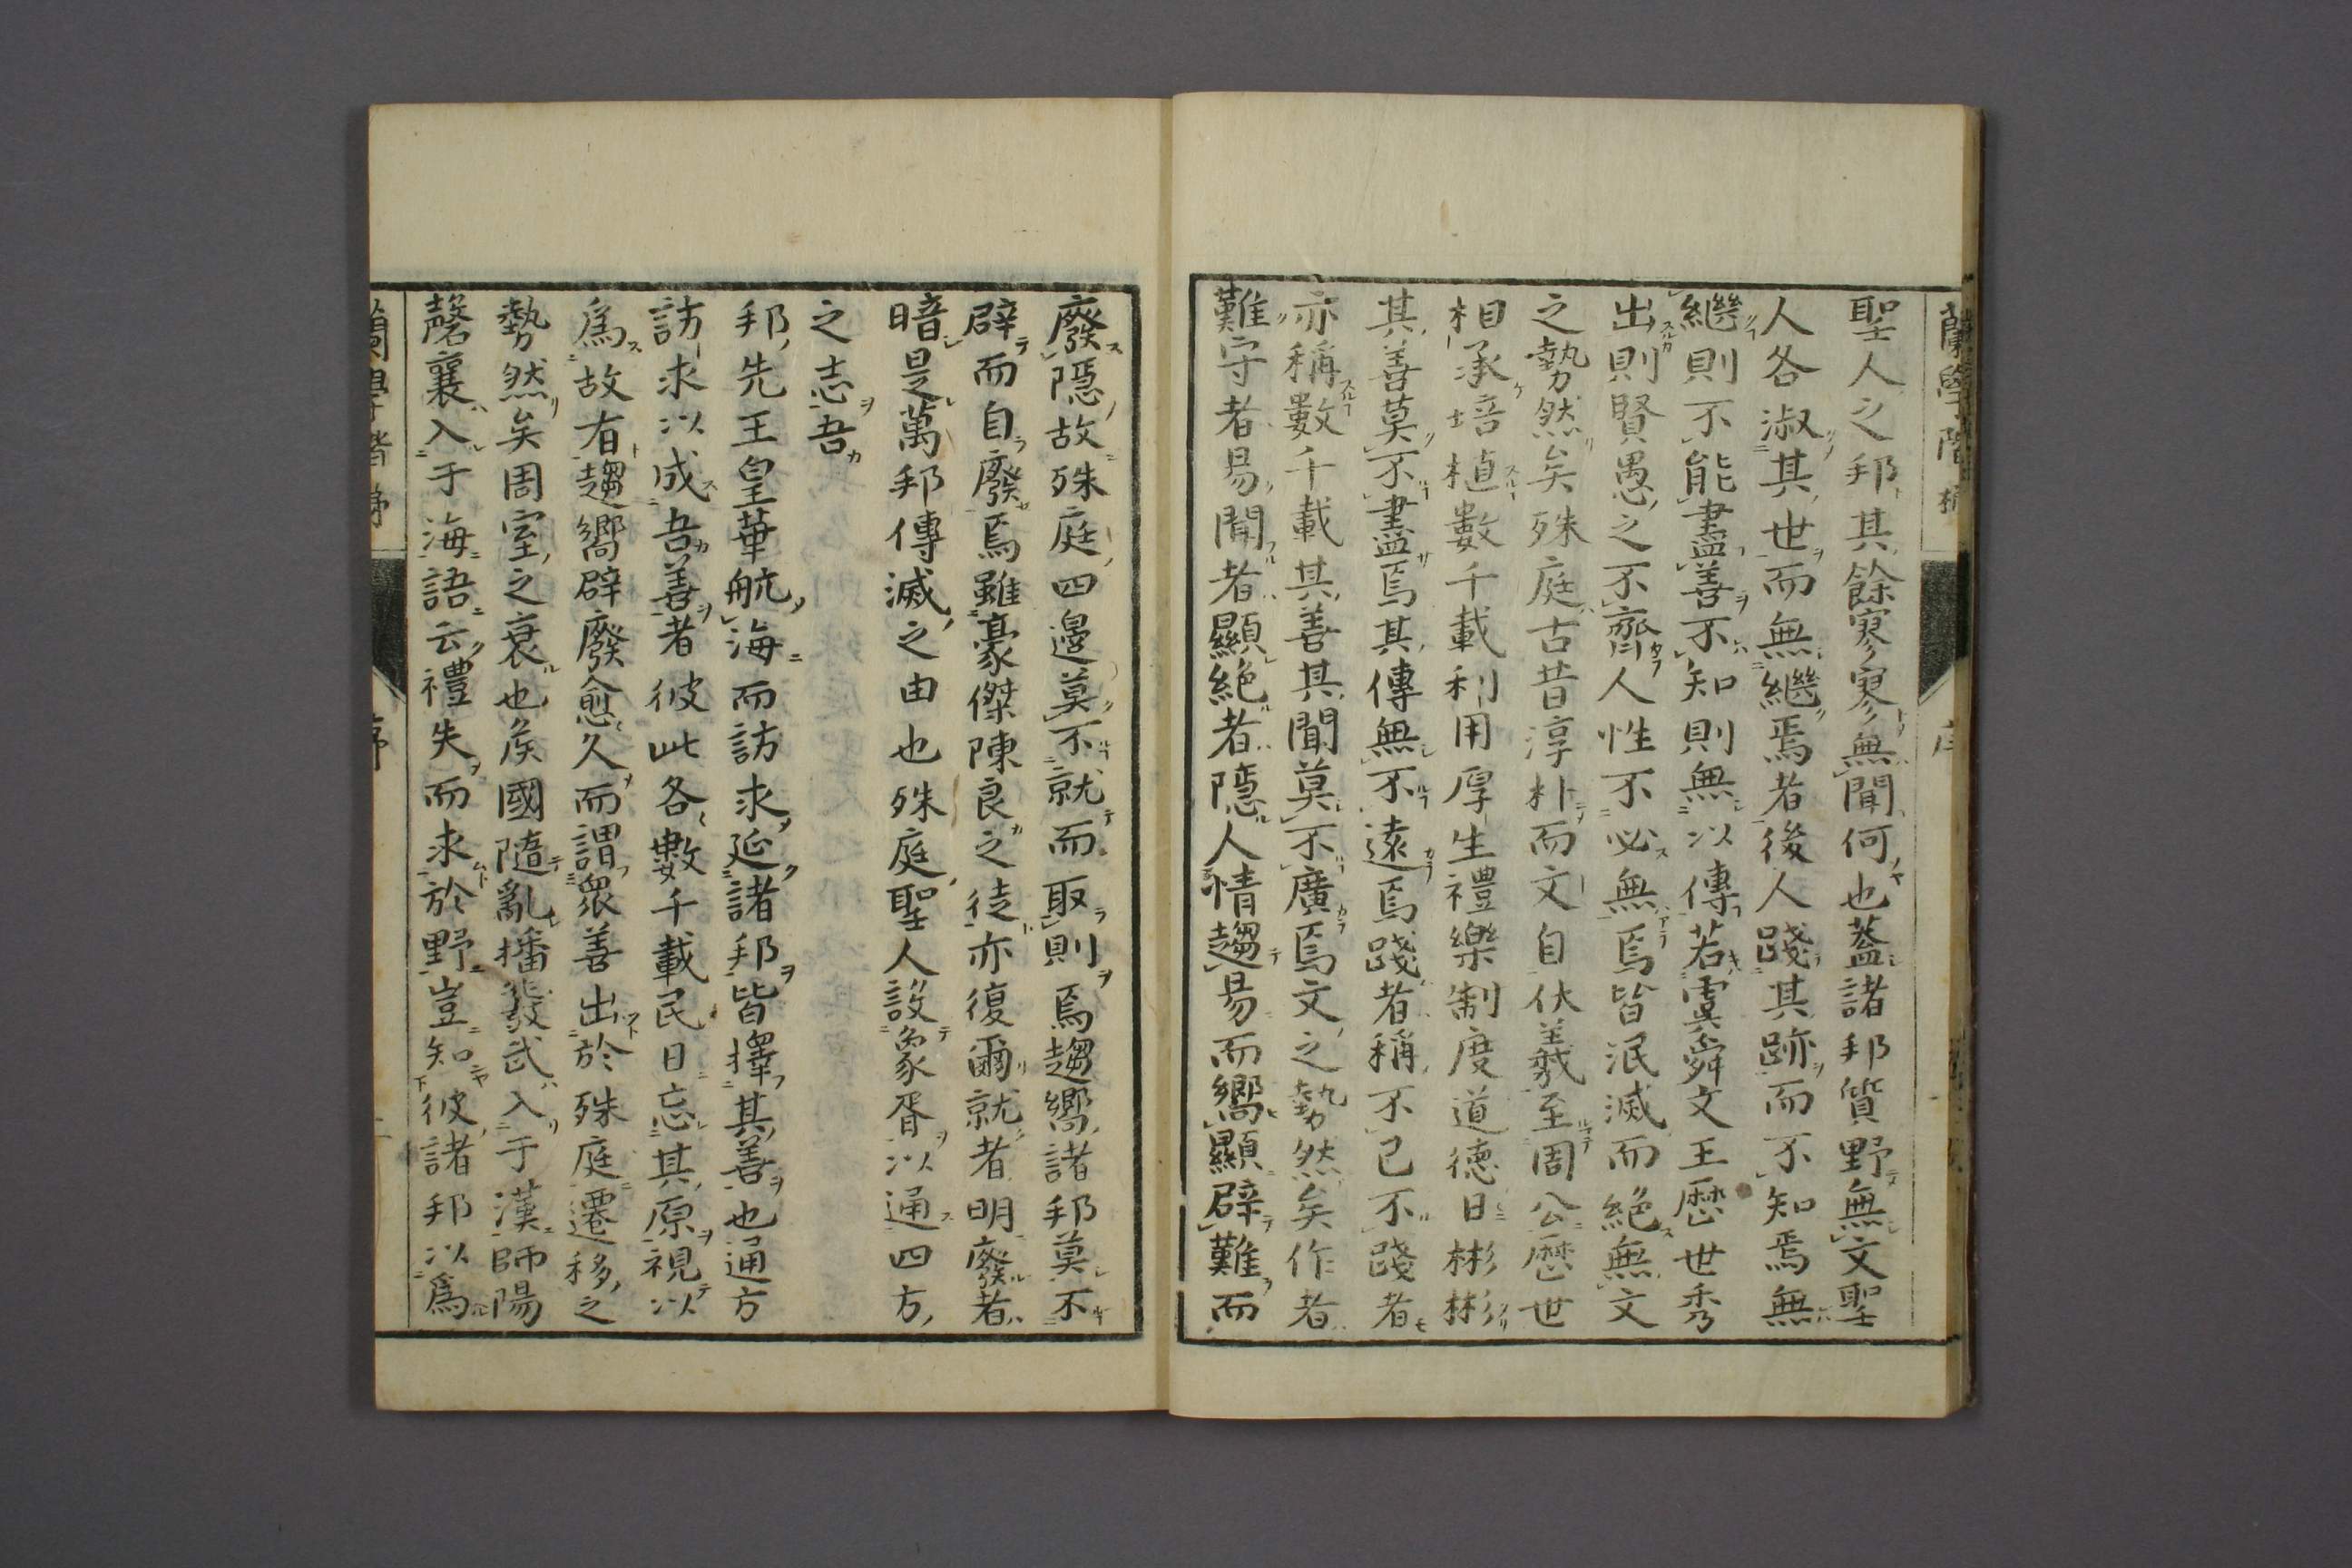 聖人之邦其餘寥寥無聞何也蓋諸邦質野無文聖
人各淑其世而無繼焉者後人踐其跡而不知焉無
繼則不能盡善不知則無以傳若虞舜文王歷世秀
出則賢愚之不齊人性不必無焉皆泯滅而絕無文
之勢然矣殊庭古昔淳朴而文自伏羲至周公歷世
相承培植數千載利用厚生禮樂制度道德日彬彬
其善莫不盡焉其傳無不遠焉踐者稱不已不踐者
亦稱數千載其善其聞莫不廣焉文之勢然矣作者
難守者易聞者顯絕者隱人情趨易而嚮顯辟難而
廢隱故殊庭四邊莫不就而取則焉趨嚮諸邦莫不
辟而自廢焉雖豪傑陳良之徒亦復爾就者明廢者
暗是萬邦傳滅之由也殊庭聖人設象胥以通四方
之志吾
邦先王皇華航海而訪求延諸邦皆擇其善也通方
訪求以成吾善者彼此各數千載民日忘其原視以
為故有趨嚮辟廢愈久而謂眾善出於殊庭遷移之
勢然矣周室之衰也侯國隨亂播鼗武入于漢師陽
磬襄入于海語云禮失而求於野豈知彼諸邦以為
蘭學階梯
序